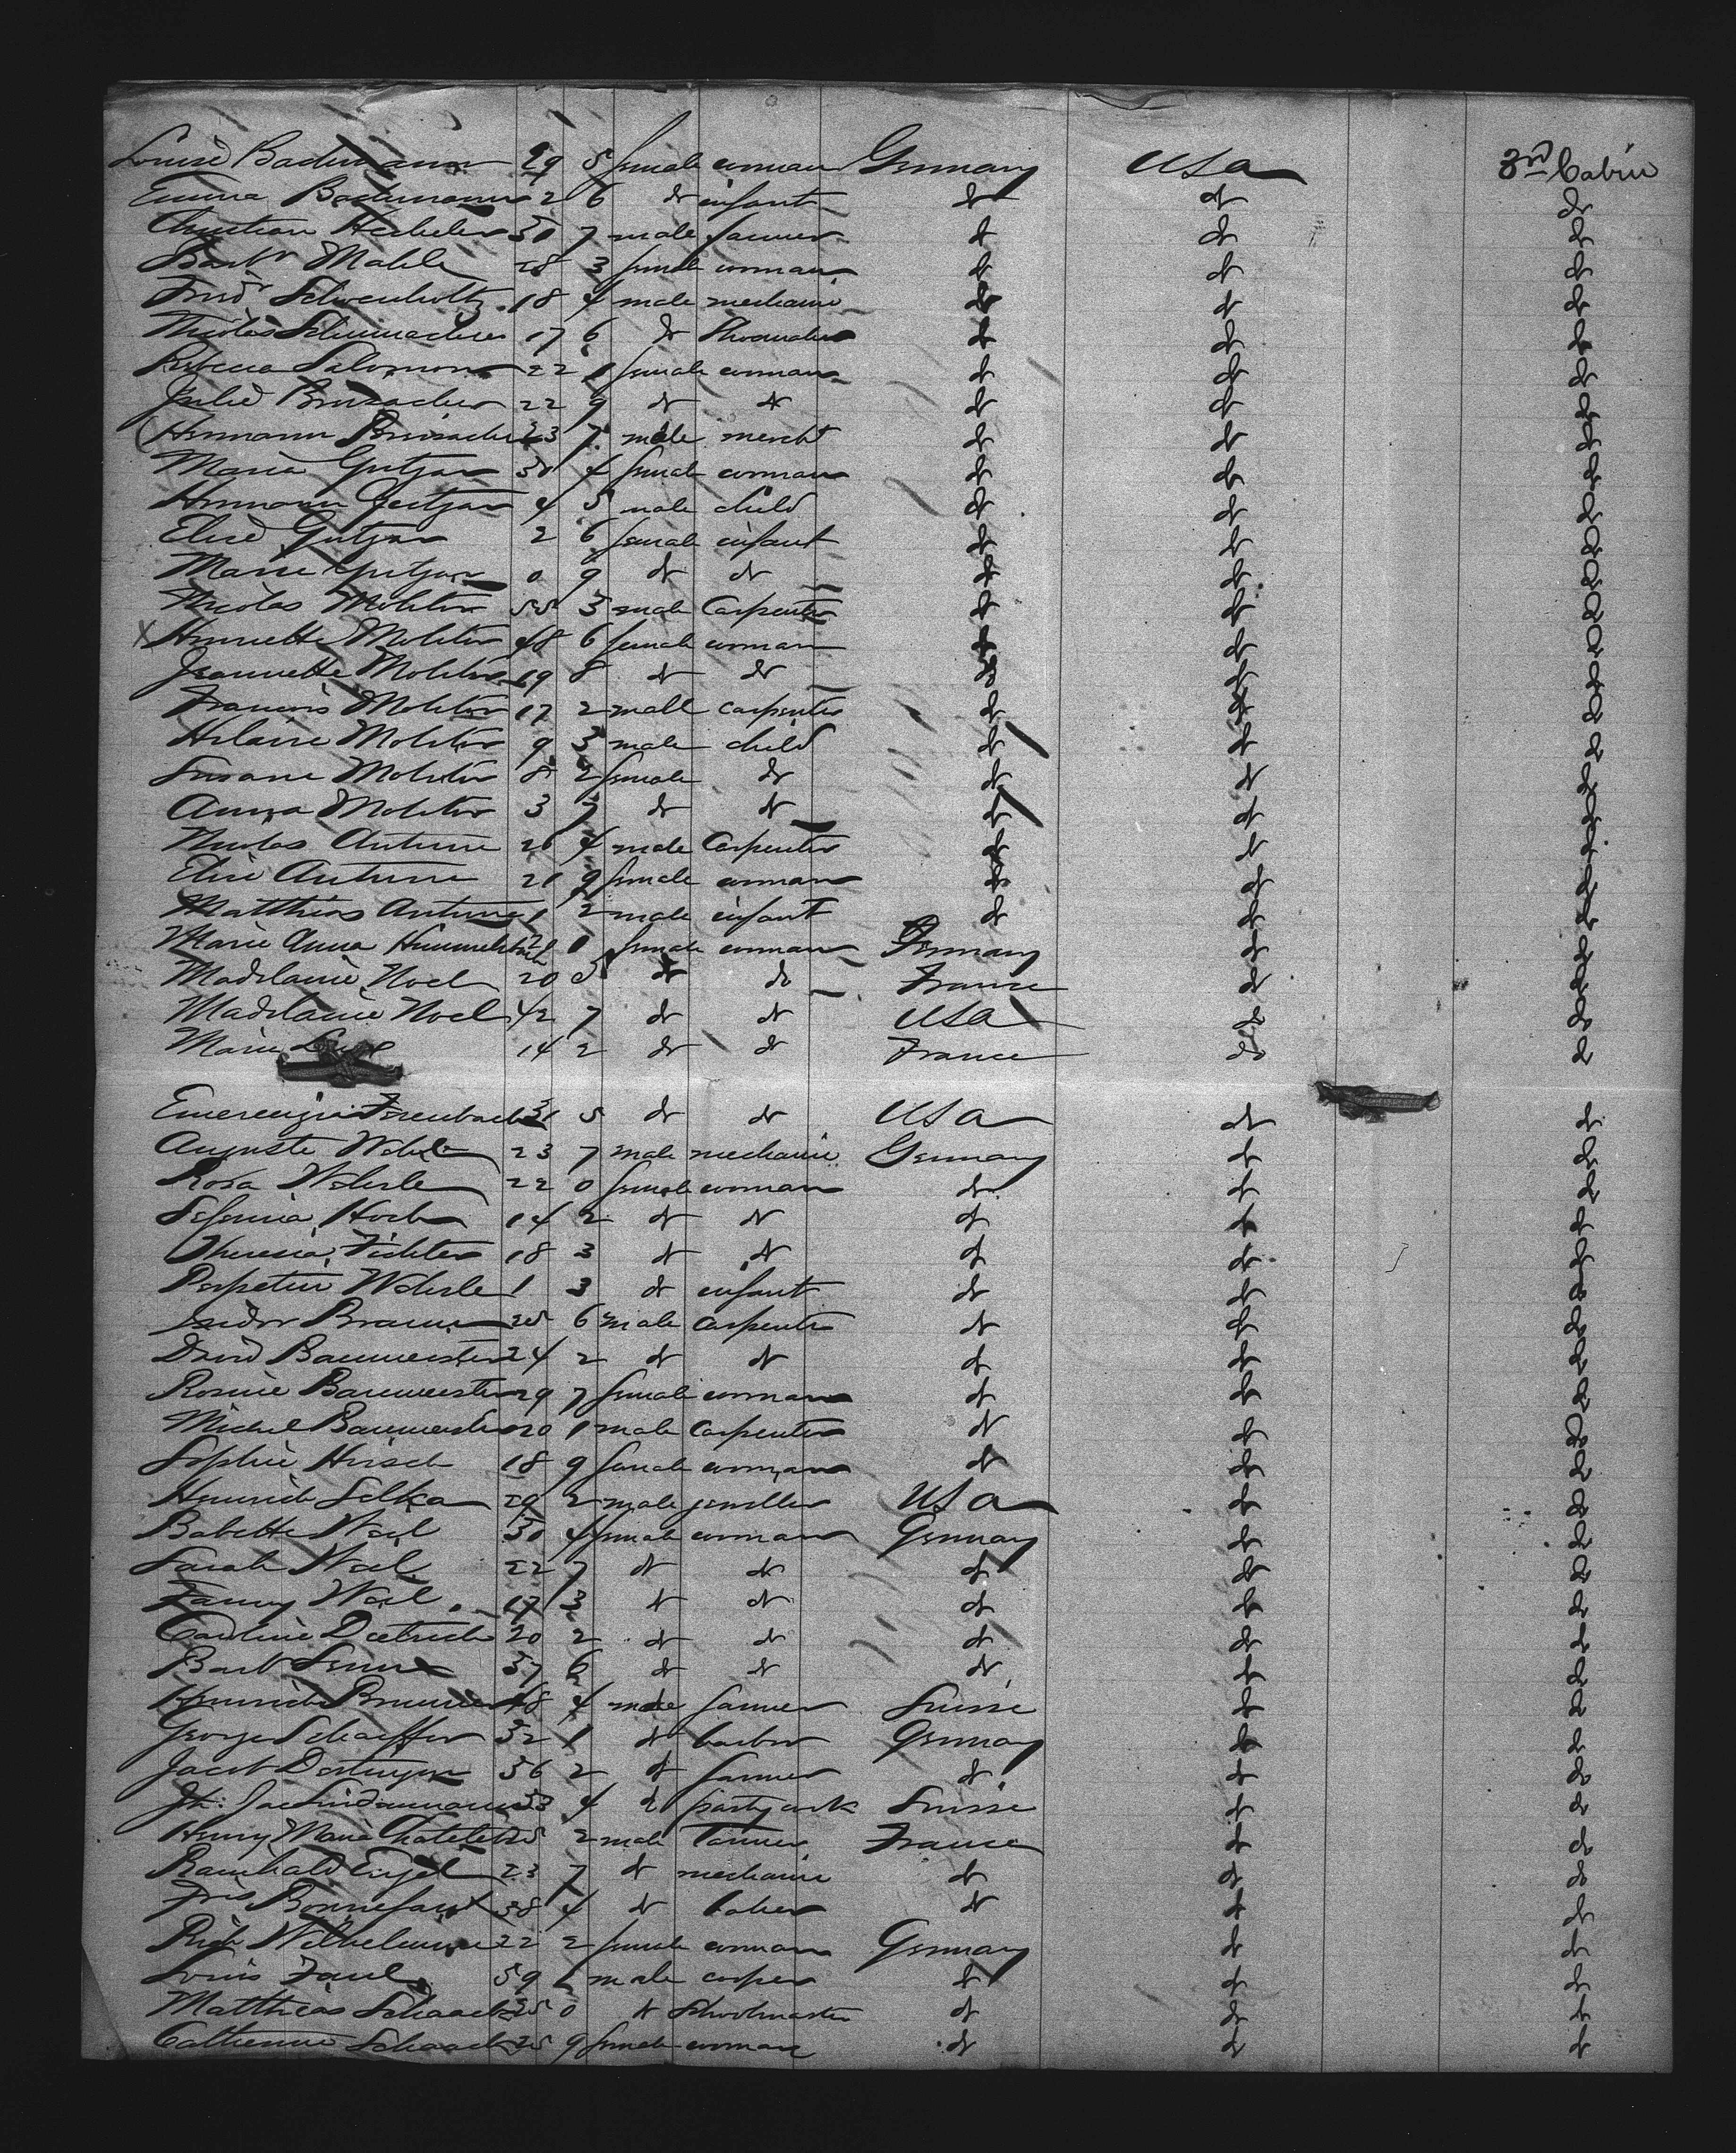 Louise Bademann 29 5 female woman Germany USA 3rd Cabin
Emma Bademann 2 6 do infant do do do
Christian Hechler 30 7 male farmer do do do
Barbr Mahle 28 3 female woman do do do
Fridr 18 4 male mechanic do do do
Nicolas Schumacher 17 6 do do do do
Rebecca Salomon 22 1 female woman do do do
Julie Brisacher 22 9 do do do do do
Hermann Brisacher 23 7 male mercht do do do
Maria Gutjar 30 4 female woman do do do
Hermann Gutjar 4 5 male child do do do
Elise Gutjar 2 6 female infant do do do
Marie Gutjar 0 9 do do do do do
Nicolas Molitor 55 3 male Carpenter do do do
X Henriette Molitor 48 6 female woman do do do
Jeannette Molitor 19 8 do do do do do
Francois Molitor 17 2 male carpenter do do do
Hilaire Molitor 9 3 male child do do do
Susane Molitor 8 2 female do do do do
Anna Molitor 3 7 do do do do do
Nicolas Antoine 26 4 male Carpenter do do do
Elise Antoine 21 9 female woman do do do
Matthias Antoine 1 2 male infant do do do
Marie Anna 1 female woman Germany do do
Madelaine Noel 20 3 do do France do do
Madelaine Noel 42 7 do do USA do do
Marie 14 2 do do France do do
31 5 do do USA do do
Auguste Wehrle 23 7 male mechanic Germany do do
Rosa Wehrle 22 0 female woman do do do
14 2 do do do do do
Theresia Fichter 18 3 do do do do do
Perpetue Wehrle 1 3 do infant do do do
Isidor Braun 25 6 male carpenter do do do
David Baumeister 24 2 do do do do do
Rosine Baumeister 29 7 female woman do do do
Michel Baumeister 20 1 male Carpenter do do do
Sophie Hirsch 18 9 female woman do do do
Heinrich Selka 29 2 male jeweller USA do do
Babette Weil 30 4 female woman Germany do do
Sarah Weil 22 7 do do do do do
Fanny Weil 17 3 do do do do do
Caroline Dietrich 20 2 do do do do do
Barb 37 6 do do do do do
Heinrich Brunner 48 4 male farmer Suisse do do
George Schaeffer 32 1 do barber Germany do do
Jacob 56 2 do farmer do do do
Jac Lindenmann 53 4 do pastry cook Suisse do do
Henry Maria Chatelet 25 2 male Tanner France do do
Reinhald Engel 23 7 do mechanic do do do
Frs Bonnefant 38 4 do baker do do do
Wilhelmine 22 2 female woman Germany do do
Louis Faul 59 male cooper do do do
Matthias Schaack 25 0 do Schoolmaster do do do
Catherine Schaack 25 9 female woman do do do